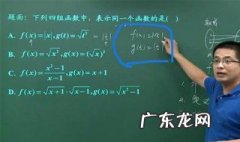 题面：下列四组函数中，表示同一个函数的是（ ）
A. f(x)=|x|, g(t)=√t² =|t|
B. f(x)=√x², g(x)=(√x)²
C. f(x)=x²-1/x-1, g(x)=x+1
D. f(x)=√x+1·√x-1, g(x)=√x²-1
f(x)=|x|
g(t)=|t|
广东龙网